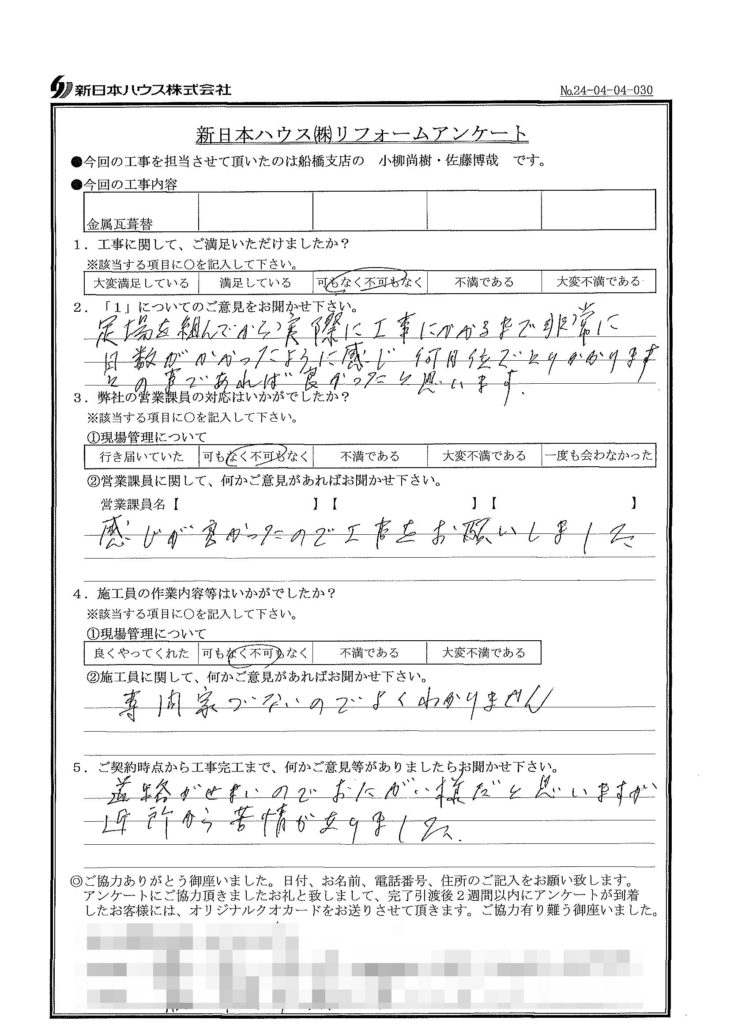 新日本ハウス株式会社
No.24-04-04-030
新日本ハウス㈱リフォームアンケート
●今回の工事を担当させて頂いたのは船橋支店の 小柳尚樹・佐藤博哉 です。
●今回の工事内容
金属瓦葺替
1．工事に関して、ご満足いただけましたか？
※該当する項目に○を記入して下さい。
大変満足している 満足している 可もなく不可もなく 不満である 大変不満である
2．「1」についてのご意見をお聞かせ下さい。
足場を組んでから実際に工事にかかるまで非常に
日数がかかったように感じ何日位でとりかかります
との事であれば良かったと思います.
3．弊社の営業課員の対応はいかがでしたか？
※該当する項目に○を記入して下さい。
①現場管理について
行き届いていた 可もなく不可もなく 不満である 大変不満である 一度も会わなかった
②営業課員に関して、何かご意見があればお聞かせ下さい。
営業課員名【 】【 】【 】
感じが良かったので工事をお願いしました
4．施工員の作業内容等はいかがでしたか？
※該当する項目に○を記入して下さい。
①現場管理について
良くやってくれた 可もなく不可もなく 不満である 大変不満である
②施工員に関して、何かご意見があればお聞かせ下さい。
専門家でないのでよくわかりません
5．ご契約時点から工事完工まで、何かご意見等がありましたらお聞かせ下さい。
道路がせまいのでおたがい様だと思いますが
近所から苦情がありました.
◎ご協力ありがとう御座いました。日付、お名前、電話番号、住所のご記入をお願い致します。
アンケートにご協力頂きましたお礼と致しまして、完了引渡後2週間以内にアンケートが到着
したお客様には、オリジナルクオカードをお送りさせて頂きます。ご協力有り難う御座いました。